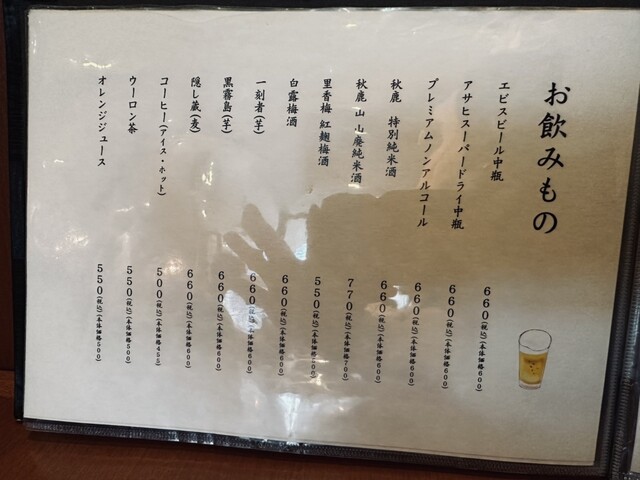 お飲みもの
エビスビール中瓶 660(税込)(本体価格600)
アサヒスーパードライ中瓶 660(税込)(本体価格600)
プレミアムノンアルコール 660(税込)(本体価格600)
秋鹿 特別純米酒 660(税込)(本体価格600)
秋鹿 山 山廃純米酒 770(税込)(本体価格700)
里香梅 紅麹梅酒 550(税込)(本体価格500)
白露梅酒 660(税込)(本体価格600)
一刻者(芋) 660(税込)(本体価格600)
黒霧島(芋) 660(税込)(本体価格600)
隠し蔵(麦) 660(税込)(本体価格600)
コーヒー(アイス・ホット) 500(税込)(本体価格455)
ウーロン茶 550(税込)(本体価格500)
オレンジジュース 550(税込)(本体価格500)